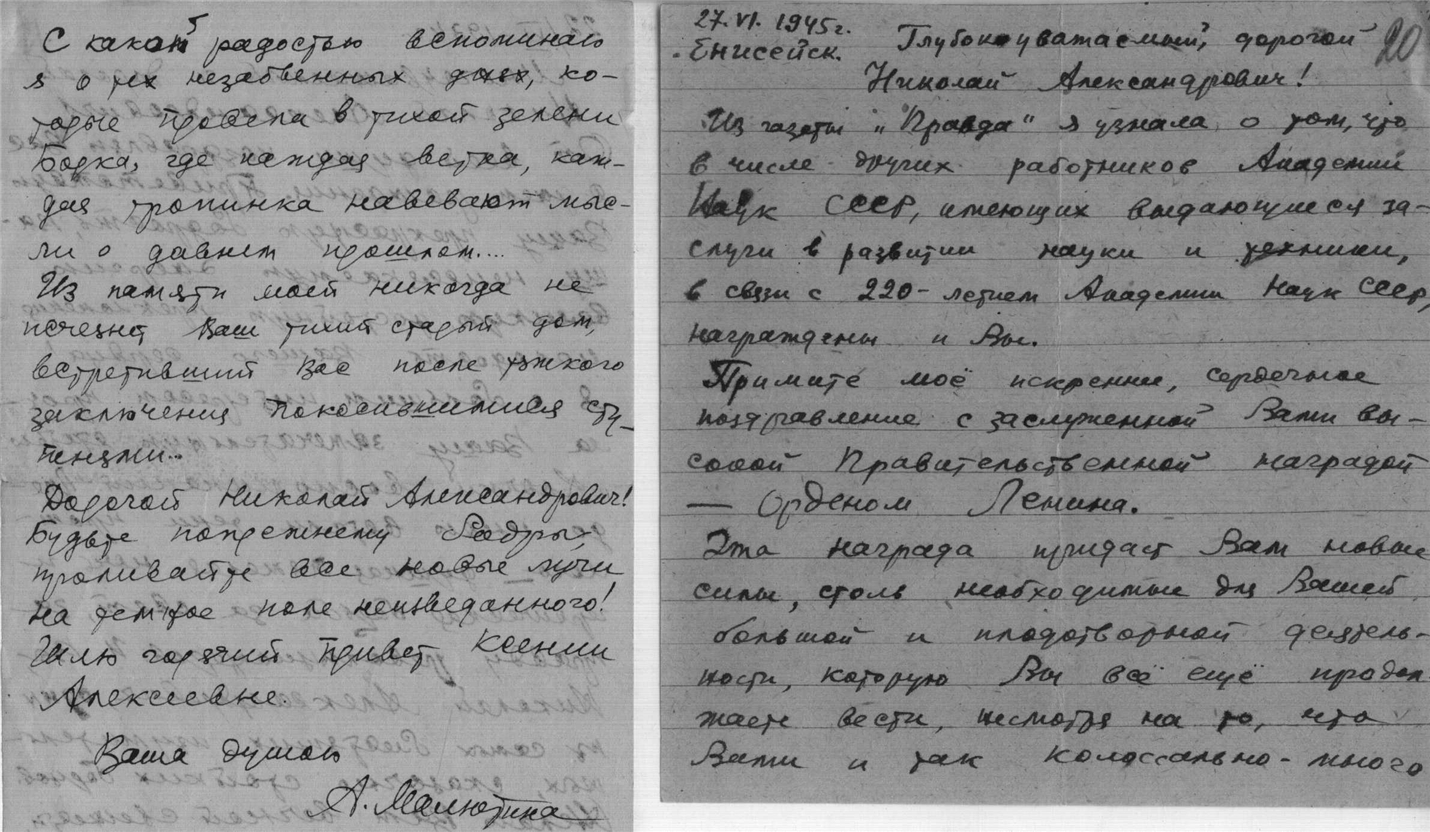 С какой радостью вспоминаю
я о тех незабвенных днях, ко-
торые провела в тихой зелени
Борка, где каждая ветка, каж-
дая тропинка навевают мыс-
ли о давнем прошлом....
Из памяти моей никогда не
исчезнет Ваш тихий старый дом,
встретивший Вас после тяжкого
заключения покосившимися сту-
пенями...
Дорогой Николай Александрович!
Будьте попрежнему бодры,
проливайте все новые лучи
на темное поле неизведанного!
Шлю горячий привет Ксении
Алексеевне.
Ваша душою
А. Малютина
27.VI.1945г.
Енисейск.
20
Глубокоуважаемый, дорогой
Николай Александрович!
Из газеты „Правда" я узнала о том, что
в числе других работников Академии
Наук СССР, имеющих выдающиеся за-
слуги в развитии науки и техники,
в связи с 220-летием Академии Наук СССР,
награждены и Вы.
Примите моё искреннее, сердечное
поздравление с заслуженной Вами вы-
сокой Правительственной наградой
— Орденом Ленина.
Эта награда придаст Вам новые
силы, столь необходимые для Вашей
большой и плодотворной деятель-
ности, которую Вы всё ещё продол
жаете вести, несмотря на то, что
Вами и так колоссально-много